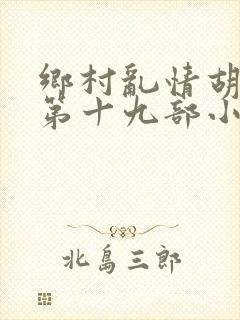 鄉村亂情胡
第十九部小
北島三郎